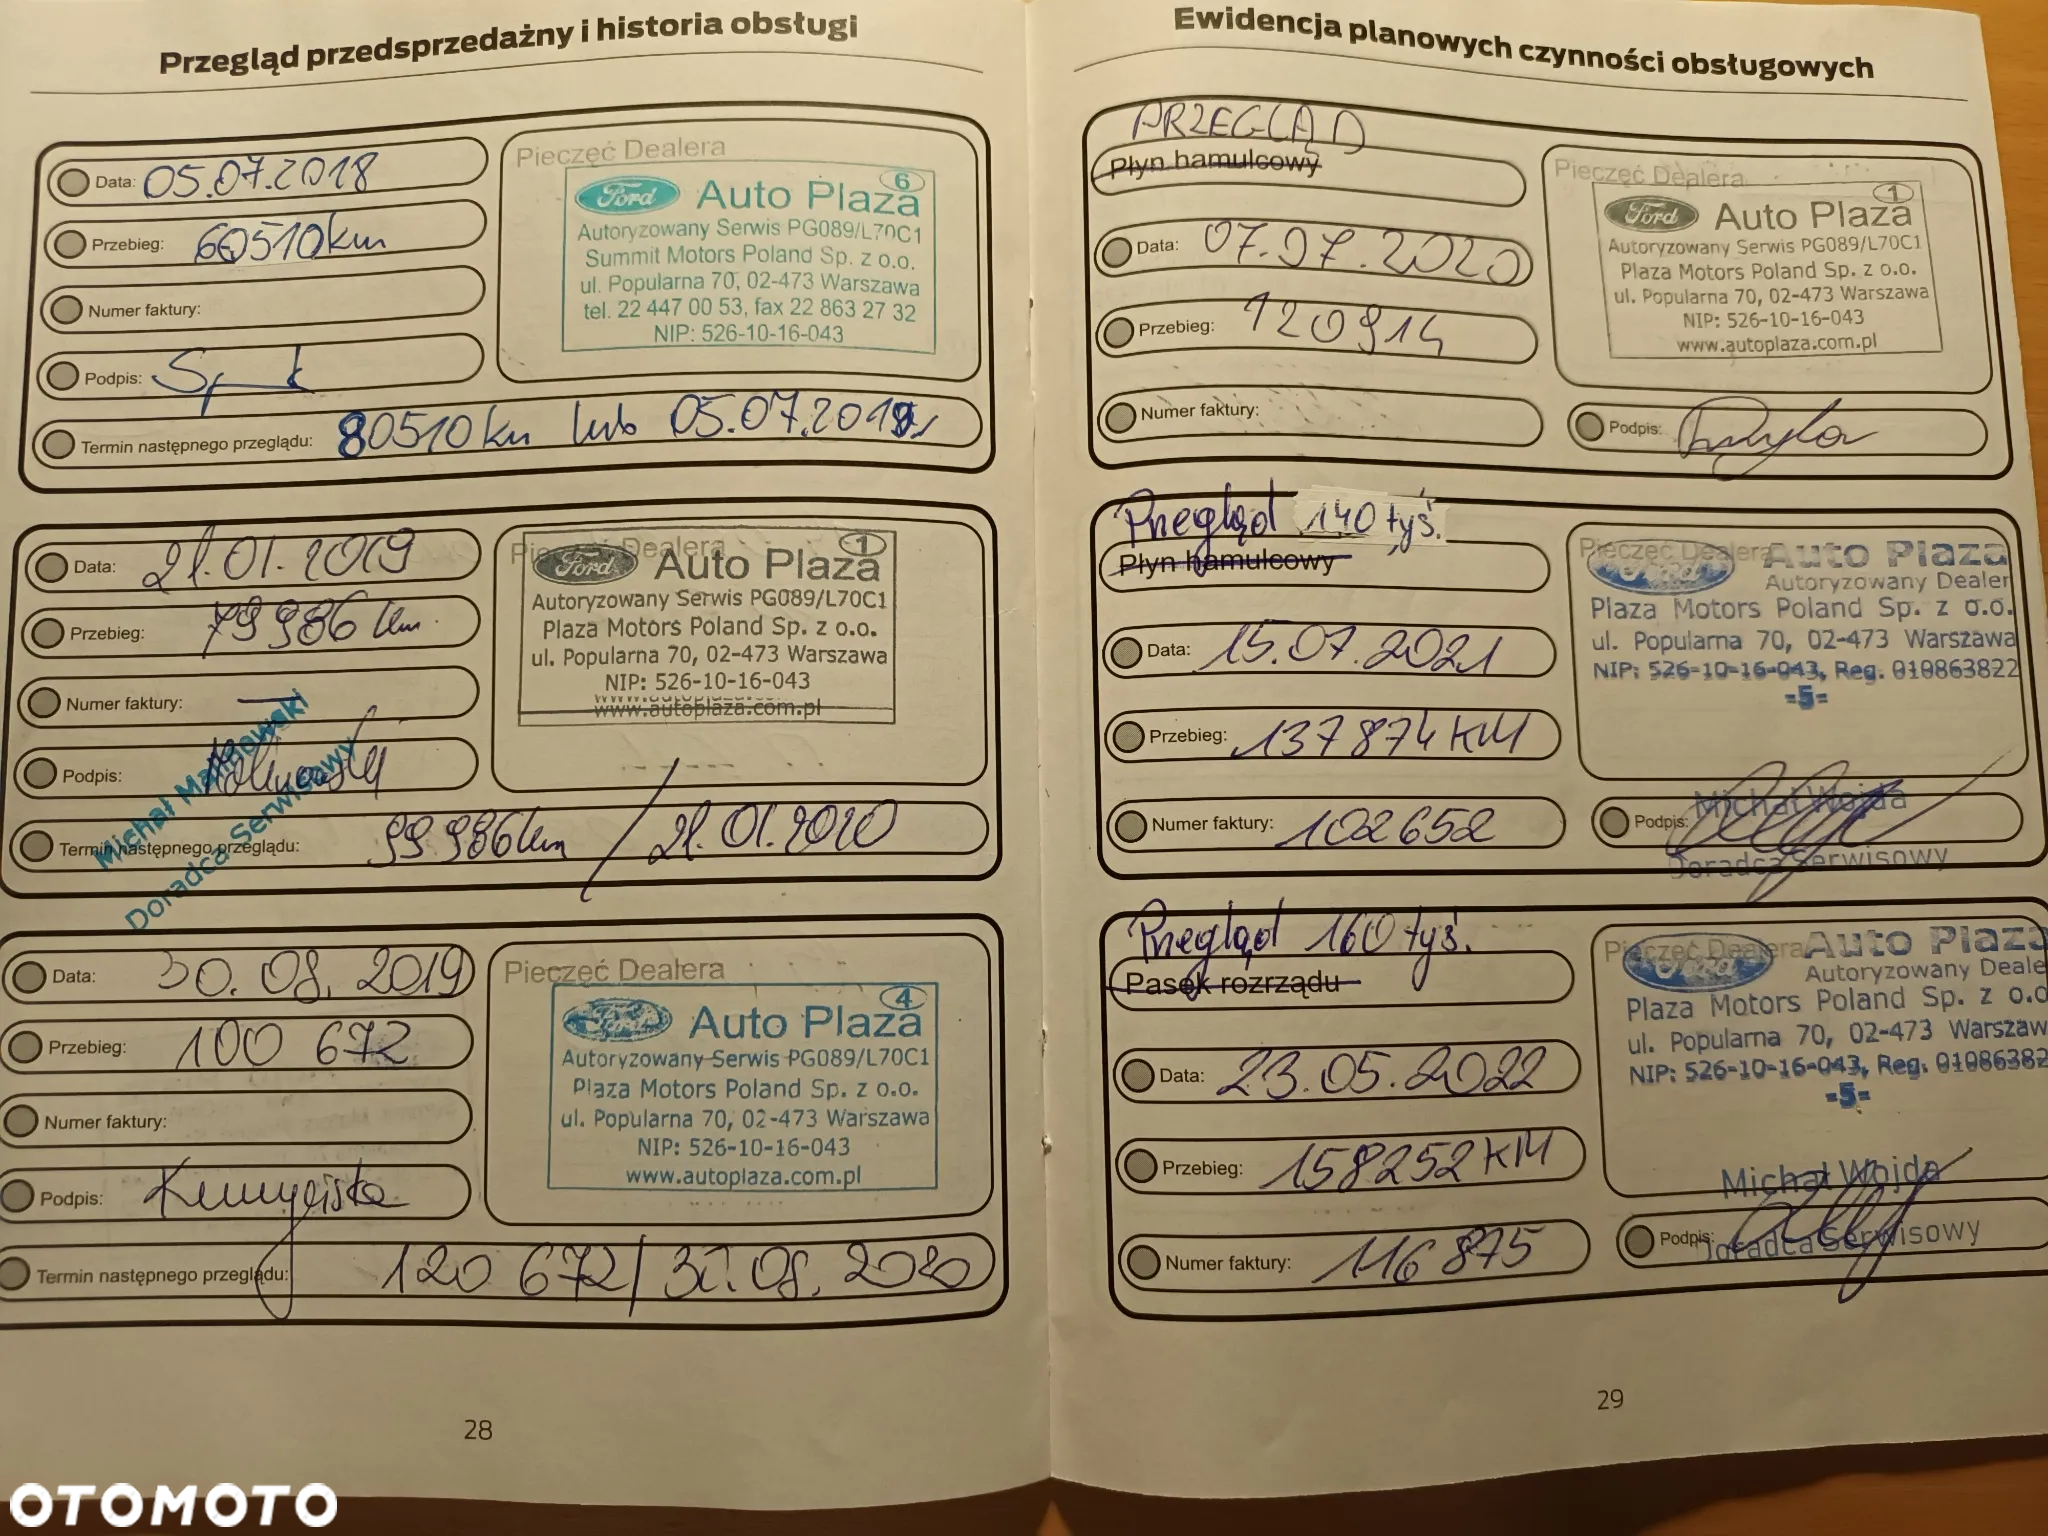 Przegląd przedsprzedażny i historia obsługi
Data: 05.07.2018
Przebieg: 60510km
Numer faktury:
Podpis:
Termin następnego przeglądu: 80510km lub 05.07.2019r
Pieczęć Dealera
6
Ford Auto Plaza
Autoryzowany Serwis PG089/L70C1
Summit Motors Poland Sp. z o.o.
ul. Popularna 70, 02-473 Warszawa
tel. 22 447 00 53, fax 22 863 27 32
NIP: 526-10-16-043
Data: 21.01.2019
Przebieg: 79986km
Numer faktury: —
Podpis:
Michał Malinowski
Doradca Serwisowy
Termin następnego przeglądu: 99986km / 21.01.2020
Pieczęć Dealera
1
Ford Auto Plaza
Autoryzowany Serwis PG089/L70C1
Plaza Motors Poland Sp. z o.o.
ul. Popularna 70, 02-473 Warszawa
NIP: 526-10-16-043
www.autoplaza.com.pl
Data: 30.08.2019
Przebieg: 100 672
Numer faktury:
Podpis:
Termin następnego przeglądu: 120 672 / 30.08.2020
Pieczęć Dealera
4
Ford Auto Plaza
Autoryzowany Serwis PG089/L70C1
Plaza Motors Poland Sp. z o.o.
ul. Popularna 70, 02-473 Warszawa
NIP: 526-10-16-043
www.autoplaza.com.pl
28
Ewidencja planowych czynności obsługowych
PRZEGLĄD
Płyn hamulcowy
Data: 07.07.2020
Przebieg: 120914
Numer faktury:
Pieczęć Dealera
1
Ford Auto Plaza
Autoryzowany Serwis PG089/L70C1
Plaza Motors Poland Sp. z o.o.
ul. Popularna 70, 02-473 Warszawa
NIP: 526-10-16-043
www.autoplaza.com.pl
Podpis:
Przegląd 140 tyś.
Płyn hamulcowy
Data: 15.07.2021
Przebieg: 137874KM
Numer faktury: 102652
Pieczęć Dealera
Ford Auto Plaza
Autoryzowany Dealer
Plaza Motors Poland Sp. z o.o.
ul. Popularna 70, 02-473 Warszawa
NIP: 526-10-16-043, Reg. 010863822
-5-
Podpis: Michał Wojda
Doradca Serwisowy
Przegląd 160 tyś.
Pasek rozrządu
Data: 23.05.2022
Przebieg: 158252KM
Numer faktury: 116875
Pieczęć Dealera
Ford Auto Plaza
Autoryzowany Deale
Plaza Motors Poland Sp. z o.o
ul. Popularna 70, 02-473 Warszaw
NIP: 526-10-16-043, Reg. 01086382
-5-
Michał Wojda
Podpis: Doradca Serwisowy
29
OTOMOTO